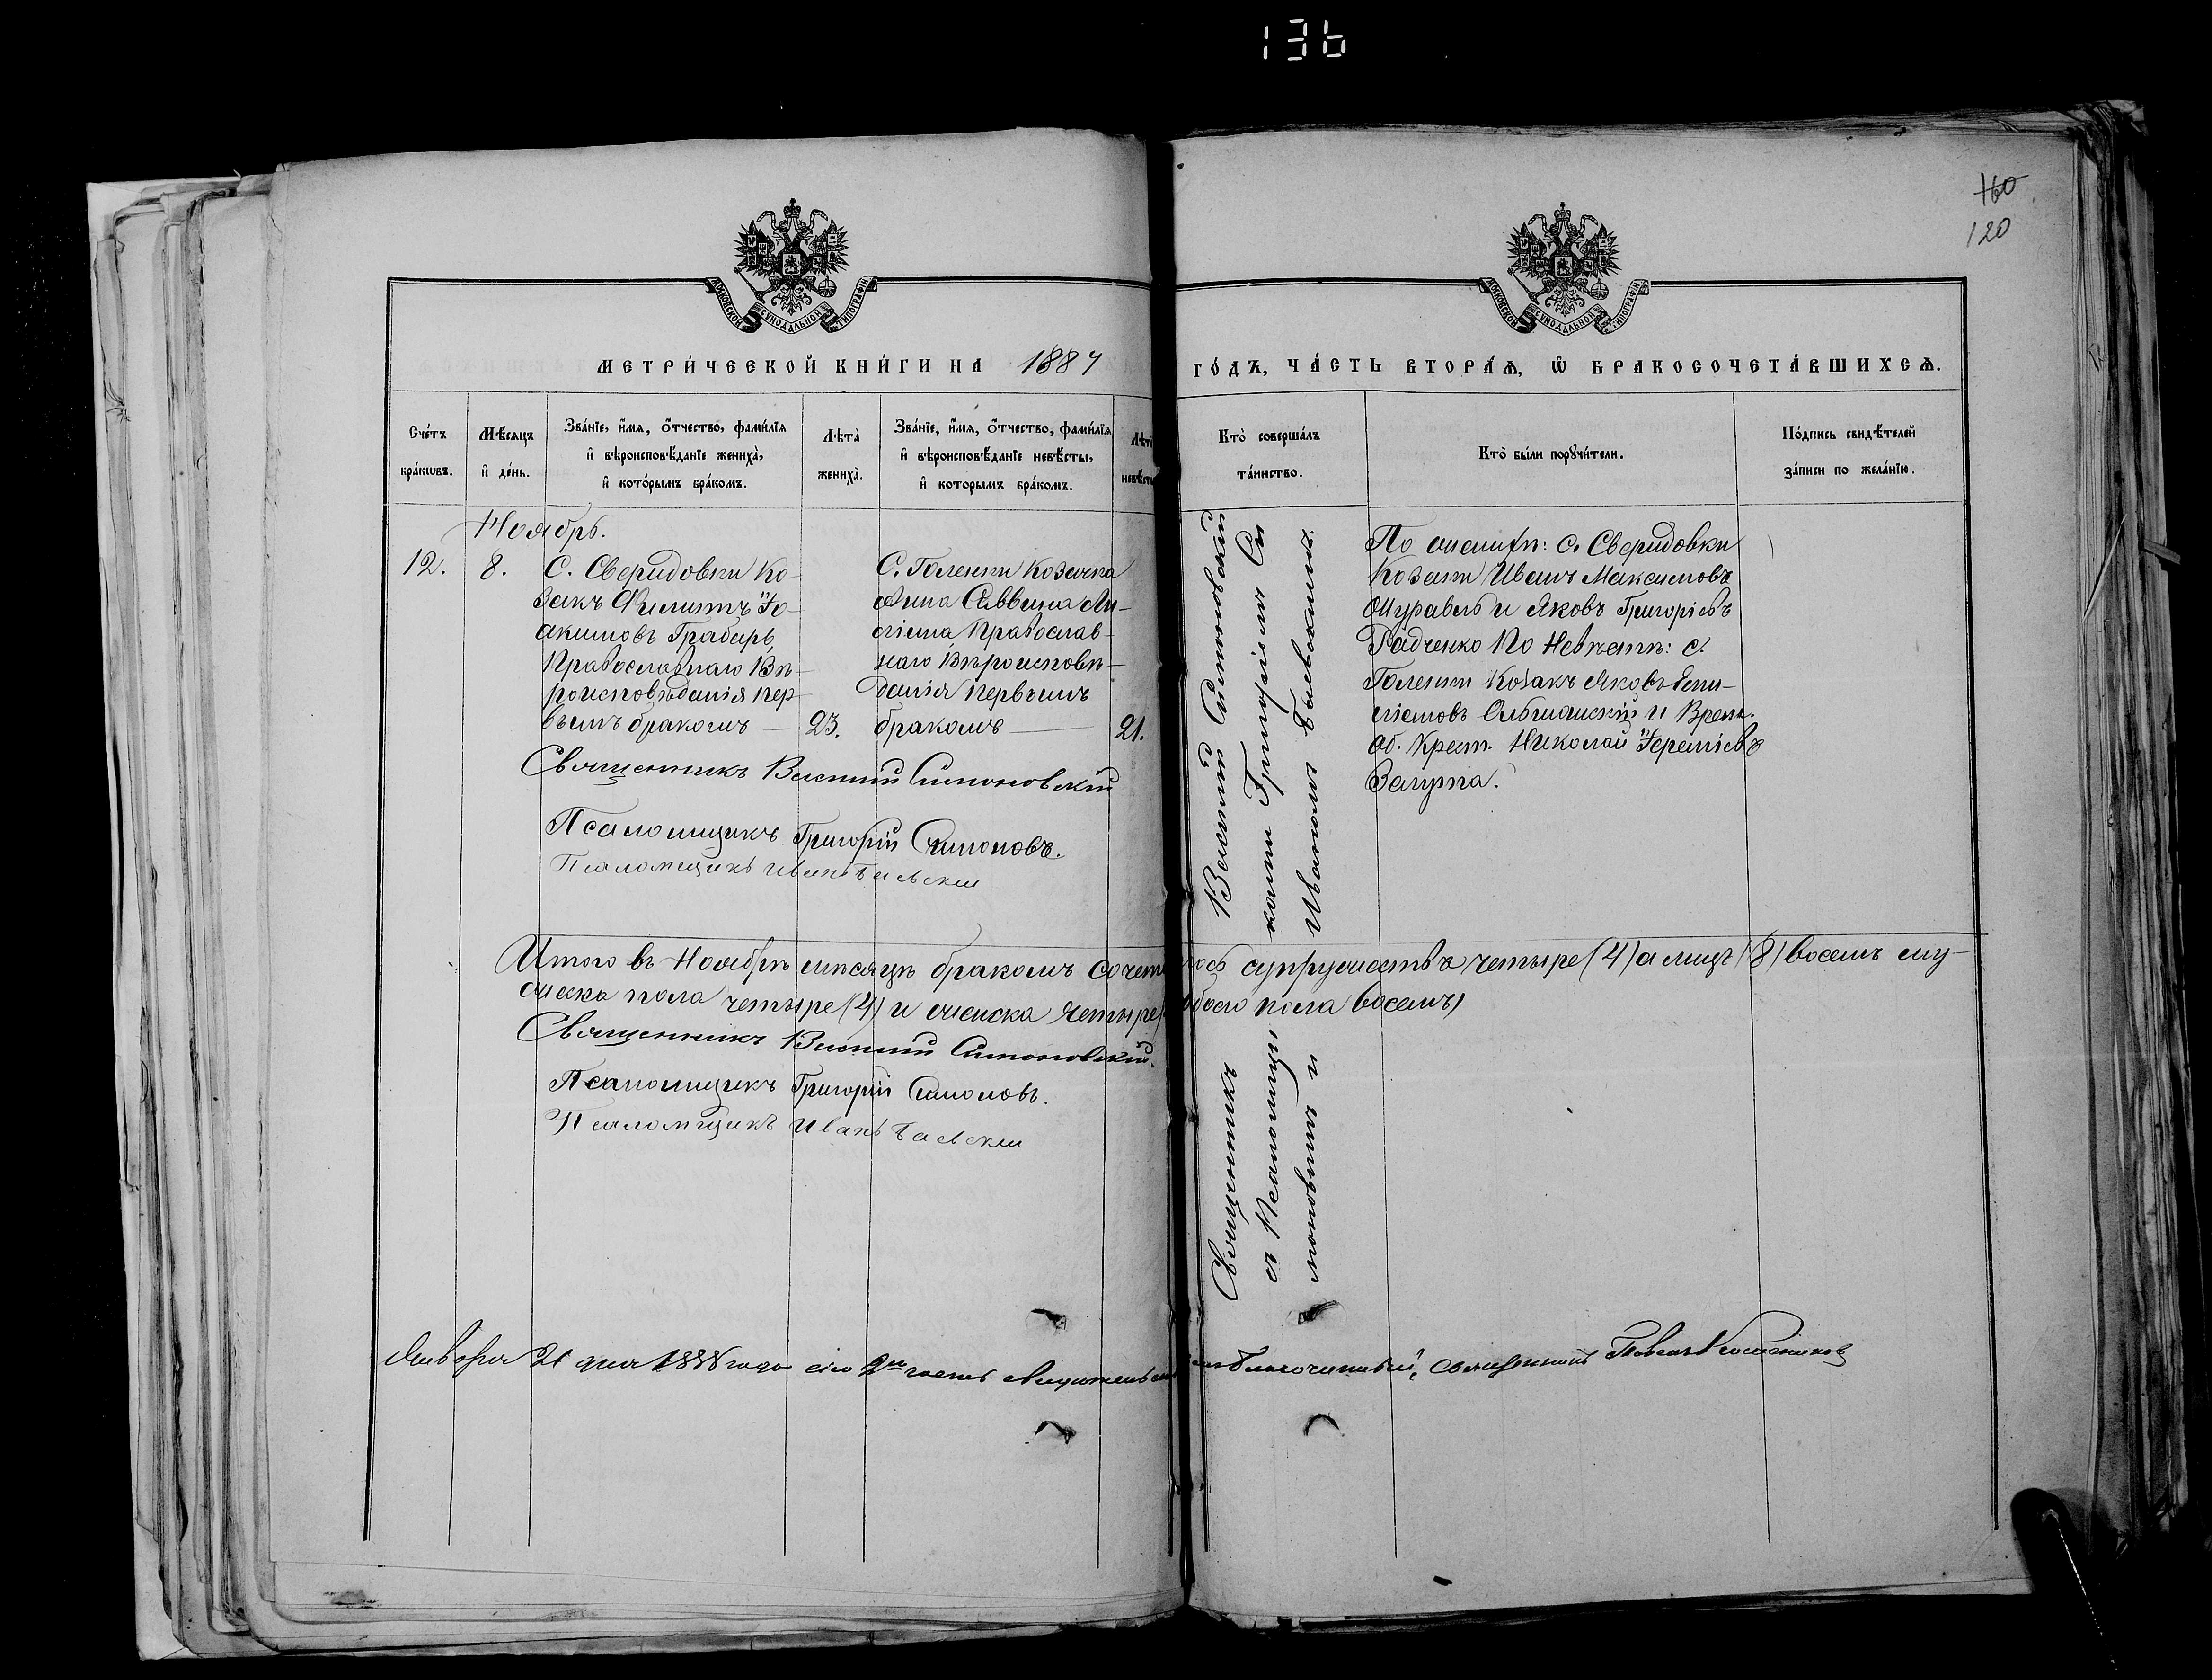 136
160
120
МОСКОВСКОЙ СѴНОДАЛЬНОЙ ТИПОГРАФІИ
МОСКОВСКОЙ СѴНОДАЛЬНОЙ ТИПОГРАФІИ
МЕТРИ́ЧЕСКОЙ КНИ́ГИ НА 1887
ГО́ДЪ, ЧА́СТЬ ВТОРА́Ѧ, Ѽ БРАКОСОЧЕТА́ВШИХСѦ.
Сче́тъ бра́кѡвъ.
Мѣ́сяцъ и҆ де́нь.
Зва́нїе, и҆́мя, ѻ҆́тчество, фами́лїя
и҆ вѣроисповѣ́данїе жениха̀,
и҆ кото́рымъ бра́комъ.
Лѣта̀ жениха̀.
Зва́нїе, и҆́мя, ѻ҆́тчество, фами́лїя
и҆ вѣроисповѣ́данїе невѣ́сты,
и҆ которымъ бра́комъ.
Лѣта̀
невѣ́сты
Кто̀ соверша́лъ
та́инство.
Кто̀ бы́ли порꙋчи́тели.
По́дпись свидѣ́телей
за́писи по жела́нїю.
Ноябрь.
12.
8.
С. Свѣридовки Ко-
закъ Филиппъ Іо-
акимовъ Грабарь,
Православнаго Вѣ-
роисповѣданія пер-
вымъ бракомъ
23.
С. Галенки Козачка
Анна Саввина
Православ-
наго Вѣроисповѣ-
данія первымъ
бракомъ
21.
Священникъ Василій Симоновскій
съ Псаломщиками Григоріемъ Си
моновымъ и Иваномъ
По женихѣ: с. Свѣридовки
Козаки Иванъ Максимовъ
Журавль и Яковъ Григорьевъ
Радченко По Невѣстѣ: с.
Галенки Козакъ Яковъ
и Врем.
Об. Крест. Николай Іереміевъ
Священникъ Василій Симоновскій
Псаломщикъ Григорій Симоновъ.
Псаломщикъ Иванъ
Итого въ Ноябрѣ мѣсяцѣ бракомъ сочеталось супружества четыре (4) а лицъ (8) восемь му-
жеска пола четыре (4) и женска четыре обоего пола восемь)
Священникъ Василій Симоновскій.
Псаломщикъ Григорій Симоновъ.
Псаломщикъ Иванъ
Января 21 дня 1888 года сію 2ю часть Благочинный, Священникъ Павелъ